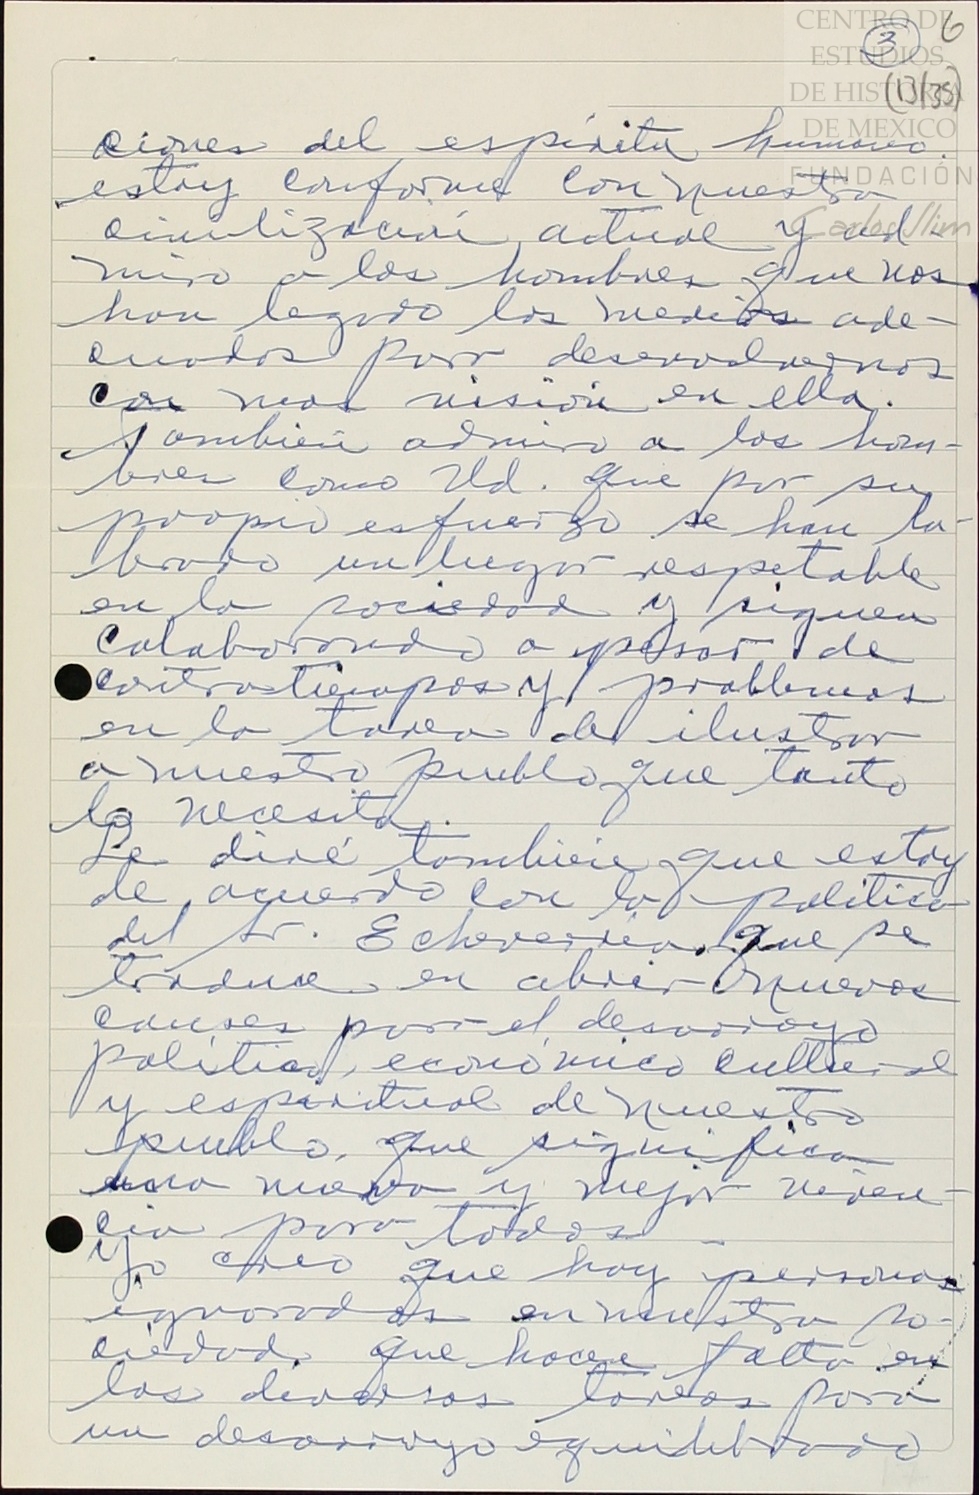 CENTRO DE
ESTUDIOS
DE HISTORIA
DE MEXICO
FUNDACIÓN
Carlos Slim
3
6
(13/35)
ciones del espiritu humano.
estoy conforme con nuestra
civilización actual y ad-
miro a los hombres que nos
han legado los medios ade-
cuados para desenvolvernos
con mas visión en ella.
También admiro a los hom-
bres como Ud. que por su
propio esfuerzo se han la-
brado un lugar respetable
en la sociedad y siguen
colaborando a pesar de
contratiempos y problemas
en la tarea de ilustrar
a nuestro pueblo que tanto
lo necesita.
Le diré también que estoy
de acuerdo con la politica
del Sr. Echeverria, que se
traduce en abrir nuevos
causes para el desarroyo
político, económico cultural
y espiritual de nuestro
pueblo, que significa
una nueva y mejor viven-
cia para todos.
Yo creo que hay personas
ignoradas en nuestra so-
ciedad, que hacen falta en
las diversas tareas para
un desarroyo equilibrado